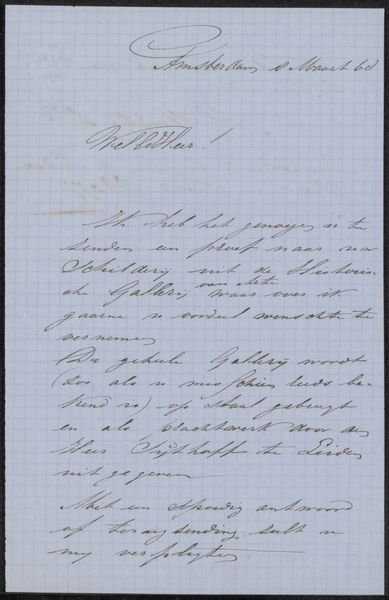 Amsterdam 8 Maart 68
WelEdHeer!
Ik heb het genoegen u te
zenden een proef naar uw
Schilderij uit de Historis-
che Gallerij van Arti waar over ik
gaarne u oordeel wenschte te
vernemen
De geheele Gallerij wordt
(zoo als u misschien reeds be-
kend is) op staal gebragt
en als prachtwerk door den
Heer Sijthoff te Leiden
uitgegeven
Met een spoedig antwoord
of terugzending zult u
mij verpligten